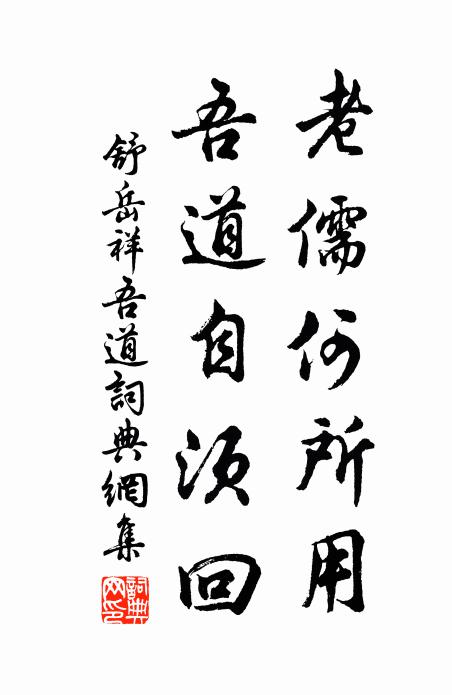 老儒何所用
吾道自須回
舒岳祥吾道詞典網集
詞典網印